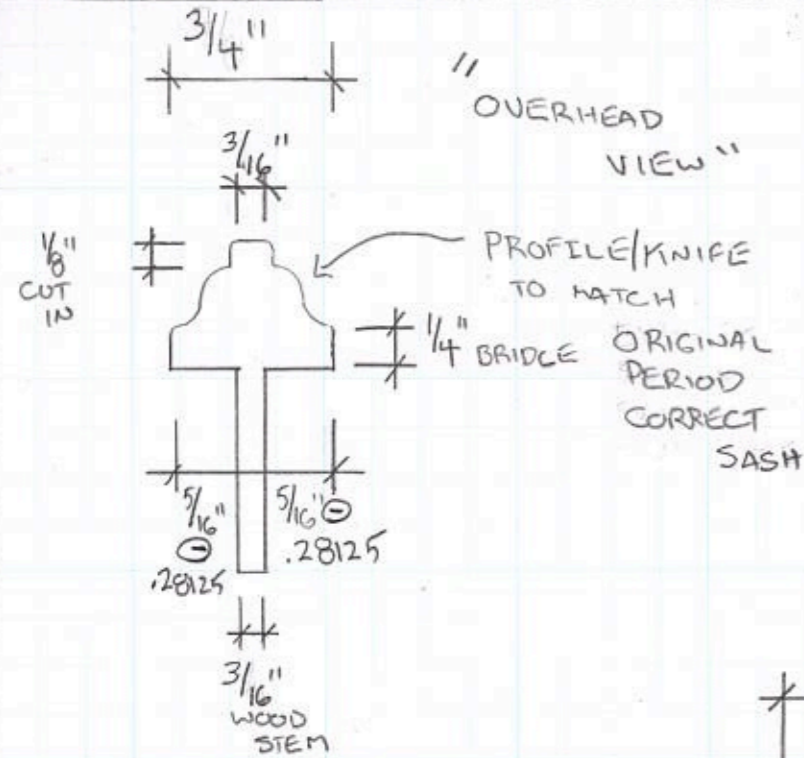 3/4"
"OVERHEAD
VIEW"
3/16"
1/8"
CUT
IN
PROFILE/KNIFE
TO MATCH
ORIGINAL
PERIOD
CORRECT
SASH
1/4" BRIDGE
5/16" ⊖
.28125
5/16" ⊖
.28125
3/16"
WOOD
STEM